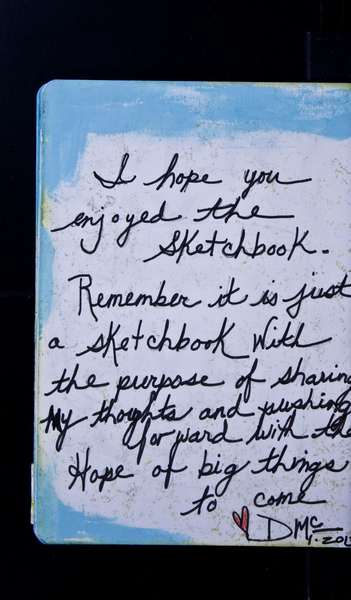 I hope you
enjoyed the
Sketchbook.
Remember it is just
a sketchbook with
the purpose of sharing
My thoughts and pushing
forward with the
Hope of big things
to come
D Mc